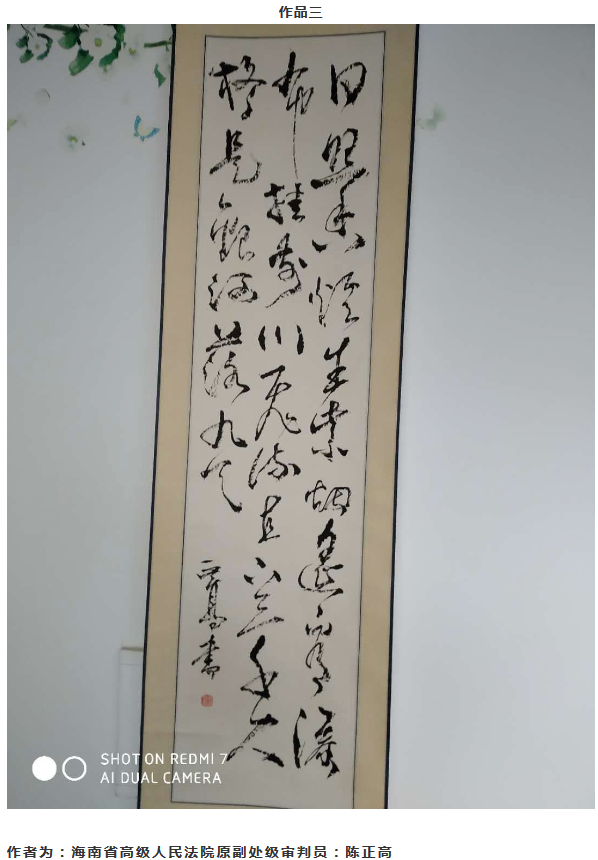 作品三
日照香爐生紫烟遥看瀑
布挂前川飛流直下三千尺
疑是銀河落九天
正高書
SHOT ON REDMI 7
AI DUAL CAMERA
作者为：海南省高级人民法院原副处级审判员：陈正高